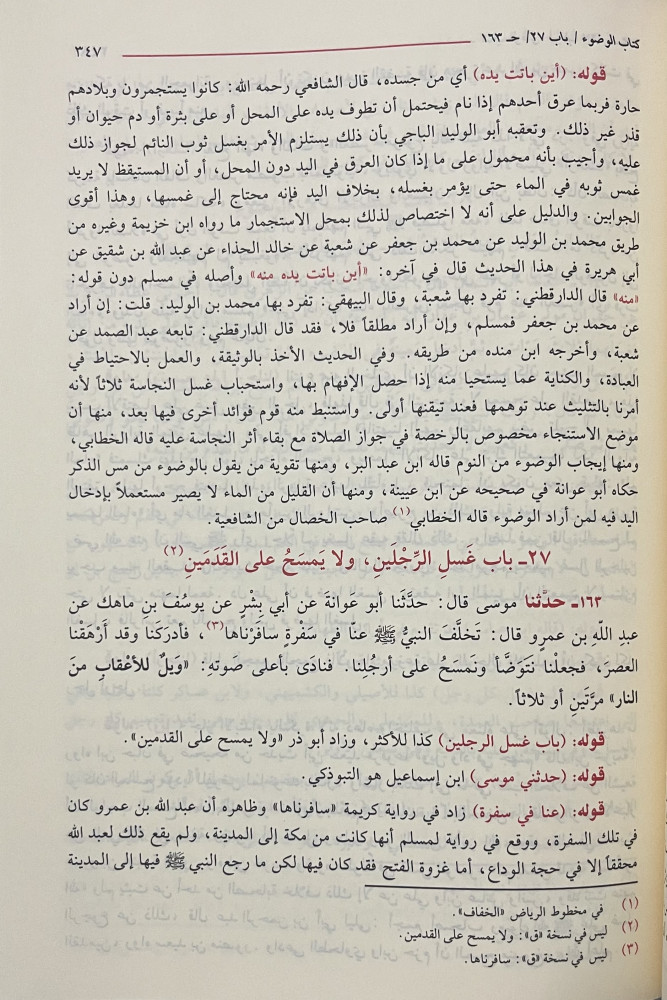 كتاب الوضوء / باب ٢٧/ حـ ١٦٣
٣٤٧
قوله: (أين باتت يده) أي من جسده، قال الشافعي رحمه الله: كانوا يستجمرون وبلادهم
حارة فربما عرق أحدهم إذا نام فيحتمل أن تطوف يده على المحل أو على بثرة أو دم حيوان أو
قذر غير ذلك. وتعقبه أبو الوليد الباجي بأن ذلك يستلزم الأمر بغسل ثوب النائم لجواز ذلك
عليه، وأجيب بأنه محمول على ما إذا كان العرق في اليد دون المحل، أو أن المستيقظ لا يريد
غمس ثوبه في الماء حتى يؤمر بغسله، بخلاف اليد فإنه محتاج إلى غمسها، وهذا أقوى
الجوابين. والدليل على أنه لا اختصاص لذلك بمحل الاستجمار ما رواه ابن خزيمة وغيره من
طريق محمد بن الوليد عن محمد بن جعفر عن شعبة عن خالد الحذاء عن عبد الله بن شقيق عن
أبي هريرة في هذا الحديث قال في آخره: «أين باتت يده منه» وأصله في مسلم دون قوله:
«منه» قال الدارقطني: تفرد بها شعبة، وقال البيهقي: تفرد بها محمد بن الوليد. قلت: إن أراد
عن محمد بن جعفر فمسلم، وإن أراد مطلقاً فلا، فقد قال الدارقطني: تابعه عبد الصمد عن
شعبة، وأخرجه ابن منده من طريقه. وفي الحديث الأخذ بالوثيقة، والعمل بالاحتياط في
العبادة، والكناية عما يستحيا منه إذا حصل الإفهام بها، واستحباب غسل النجاسة ثلاثاً لأنه
أمرنا بالتثليث عند توهمها فعند تيقنها أولى. واستنبط منه قوم فوائد أخرى فيها بعد، منها أن
موضع الاستنجاء مخصوص بالرخصة في جواز الصلاة مع بقاء أثر النجاسة عليه قاله الخطابي،
ومنها إيجاب الوضوء من النوم قاله ابن عبد البر، ومنها تقوية من يقول بالوضوء من مس الذكر
حكاه أبو عوانة في صحيحه عن ابن عيينة، ومنها أن القليل من الماء لا يصير مستعملاً بإدخال
اليد فيه لمن أراد الوضوء قاله الخطابي(١) صاحب الخصال من الشافعية.
٢٧ـ باب غَسلِ الرِّجْلَينِ، ولا يَمسَحُ على القَدَمَينِ(٢)
١٦٣ـ حدَّثنا موسى قال: حدَّثَنا أبو عَوانةَ عن أبي بِشْرٍ عن يوسُفَ بنِ ماهك عن
عبدِ اللّهِ بن عمرٍو قال: تَخلَّفَ النبيُّ ﷺ عنّا في سَفْرةٍ سافَرْناها(٣)، فأدرَكَنا وقد أرْهَقْنا
العصرَ، فجعلْنا نَتَوَضَّأ ونَمسَحُ على أرجُلِنا. فنادَى بأعلى صَوتهِ: «وَيلٌ للأعْقابِ منَ
النار» مرَّتَين أو ثلاثاً.
قوله: (باب غسل الرجلين) كذا للأكثر، وزاد أبو ذر «ولا يمسح على القدمين».
قوله: (حدثني موسى) ابن إسماعيل هو التبوذكي.
قوله: (عنا في سفرة) زاد في رواية كريمة «سافرناها» وظاهره أن عبد الله بن عمرو كان
في تلك السفرة، ووقع في رواية لمسلم أنها كانت من مكة إلى المدينة، ولم يقع ذلك لعبد الله
محققاً إلا في حجة الوداع، أما غزوة الفتح فقد كان فيها لكن ما رجع النبي ﷺ فيها إلى المدينة
(١) في مخطوط الرياض «الخفاف».
(٢) ليس في نسخة «ق»: ولا يمسح على القدمين.
(٣) ليس في نسخة «ق»: سافرناها.